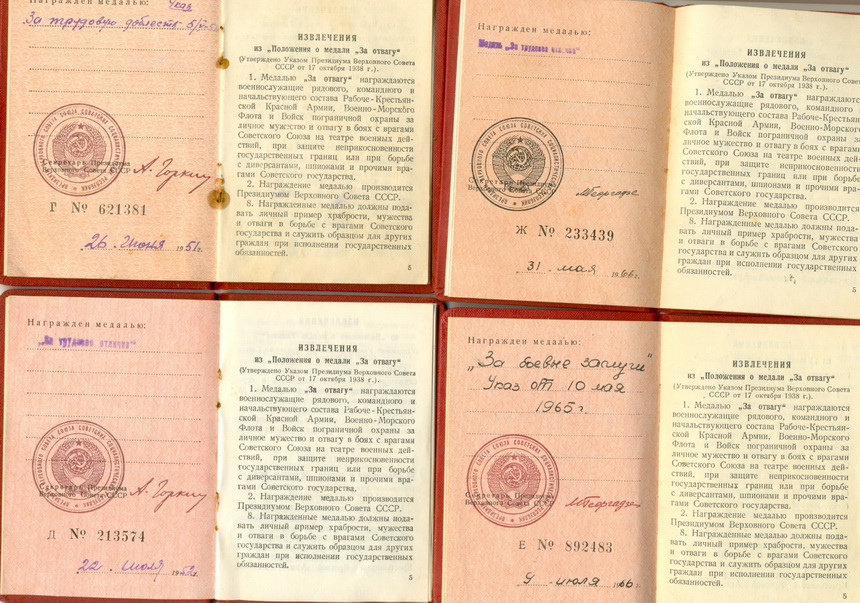 Указ
За трудовую доблесть 5/V-5
Секретарь Президиума
Верховного Совета СССР
А. Горкин
Г № 621381
26 июня 1951г.
ИЗВЛЕЧЕНИЯ
из „Положения о медали „За отвагу“
(Утверждено Указом Президиума Верховного Совета
СССР от 17 октября 1938 г.)
1. Медалью „За отвагу“ награждаются
военнослужащие рядового, командного и
начальствующего состава Рабоче-Крестьян-
ской Красной Армии, Военно-Морского
Флота и Войск пограничной охраны за
личное мужество и отвагу в боях с врагами
Советского Союза на театре военных дей-
ствий, при защите неприкосновенности
государственных границ или при борьбе
с диверсантами, шпионами и прочими вра-
гами Советского государства.
2. Награждение медалью производится
Президиумом Верховного Совета СССР.
8. Награжденные медалью должны пода-
вать личный пример храбрости, мужества
и отваги в борьбе с врагами Советского
государства и служить образцом для других
граждан при исполнении государственных
обязанностей.
5
Награжден медалью:
Медаль „За трудовое отличие“
Секретарь Президиума
Верховного Совета СССР
МГеоргадзе
Ж № 233439
31 мая 1966г.
ИЗВЛЕЧЕНИЯ
из „Положения о медали „За отвагу“
(Утверждено Указом Президиума Верховного Совета
СССР от 17 октября 1938 г.)
1. Медалью „За отвагу“ награждаются
военнослужащие рядового, командного и
начальствующего состава Рабоче-Крестьян-
ской Красной Армии, Военно-Морского
Флота и Войск пограничной охраны за
личное мужество и отвагу в боях с врагами
Советского Союза на театре военных дей-
ствий, при защите неприкосновенности
государственных границ или при борьбе
с диверсантами, шпионами и прочими вра-
гами Советского государства.
2. Награждение медалью производится
Президиумом Верховного Совета СССР.
8. Награжденные медалью должны пода-
вать личный пример храбрости, мужества
и отваги в борьбе с врагами Советского
государства и служить образцом для других
граждан при исполнении государственных
обязанностей.
5
Награжден медалью:
„За трудовое отличие“
Секретарь Президиума
Верховного Совета СССР
А. Горкин
Д № 213574
22 июля
ИЗВЛЕЧЕНИЯ
из „Положения о медали „За отвагу“
(Утверждено Указом Президиума Верховного Совета
СССР от 17 октября 1938 г.).
1. Медалью „За отвагу“ награждаются
военнослужащие рядового, командного и
начальствующего состава Рабоче-Крестьян-
ской Красной Армии, Военно-Морского
Флота и Войск пограничной охраны за
личное мужество и отвагу в боях с врагами
Советского Союза на театре военных дей-
ствий, при защите неприкосновенности
государственных границ или при борьбе
с диверсантами, шпионами и прочими вра-
гами Советского государства.
2. Награждение медалью производится
Президиумом Верховного Совета СССР.
8. Награжденные медалью должны пода-
вать личный пример храбрости, мужества
и отваги в борьбе с врагами Советского
государства и служить образцом для других
граждан при исполнении государственных
обязанностей.
5
Награжден медалью:
„За боевые заслуги“
Указ от 10 мая
1965г.
Секретарь Президиума
Верховного Совета СССР
МГеоргадзе
Е № 892483
9 июля 1966г.
ИЗВЛЕЧЕНИЯ
из „Положения о медали „За отвагу“
(Утверждено Указом Президиума Верховного Совета
СССР от 17 октября 1938 г.)
1. Медалью „За отвагу“ награждаются
военнослужащие рядового, командного и
начальствующего состава Рабоче-Крестьян-
ской Красной Армии, Военно-Морского
Флота и Войск пограничной охраны за
личное мужество и отвагу в боях с врагами
Советского Союза на театре военных дей-
ствий, при защите неприкосновенности
государственных границ или при борьбе
с диверсантами, шпионами и прочими вра-
гами Советского государства.
2. Награждение медалью производится
Президиумом Верховного Совета СССР.
8. Награжденные медалью должны пода-
вать личный пример храбрости, мужества
и отваги в борьбе с врагами Советского
государства и служить образцом для других
граждан при исполнении государственных
обязанностей.
5